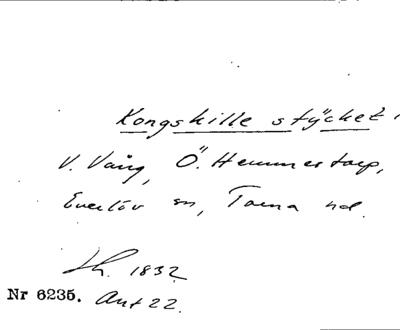 Kongskille stÿcket i
V. Vång, Ö. Hemmestorp,
Everlöv sn, Torna hd.
Lh. 1832
Nr 6235. Akt 22.